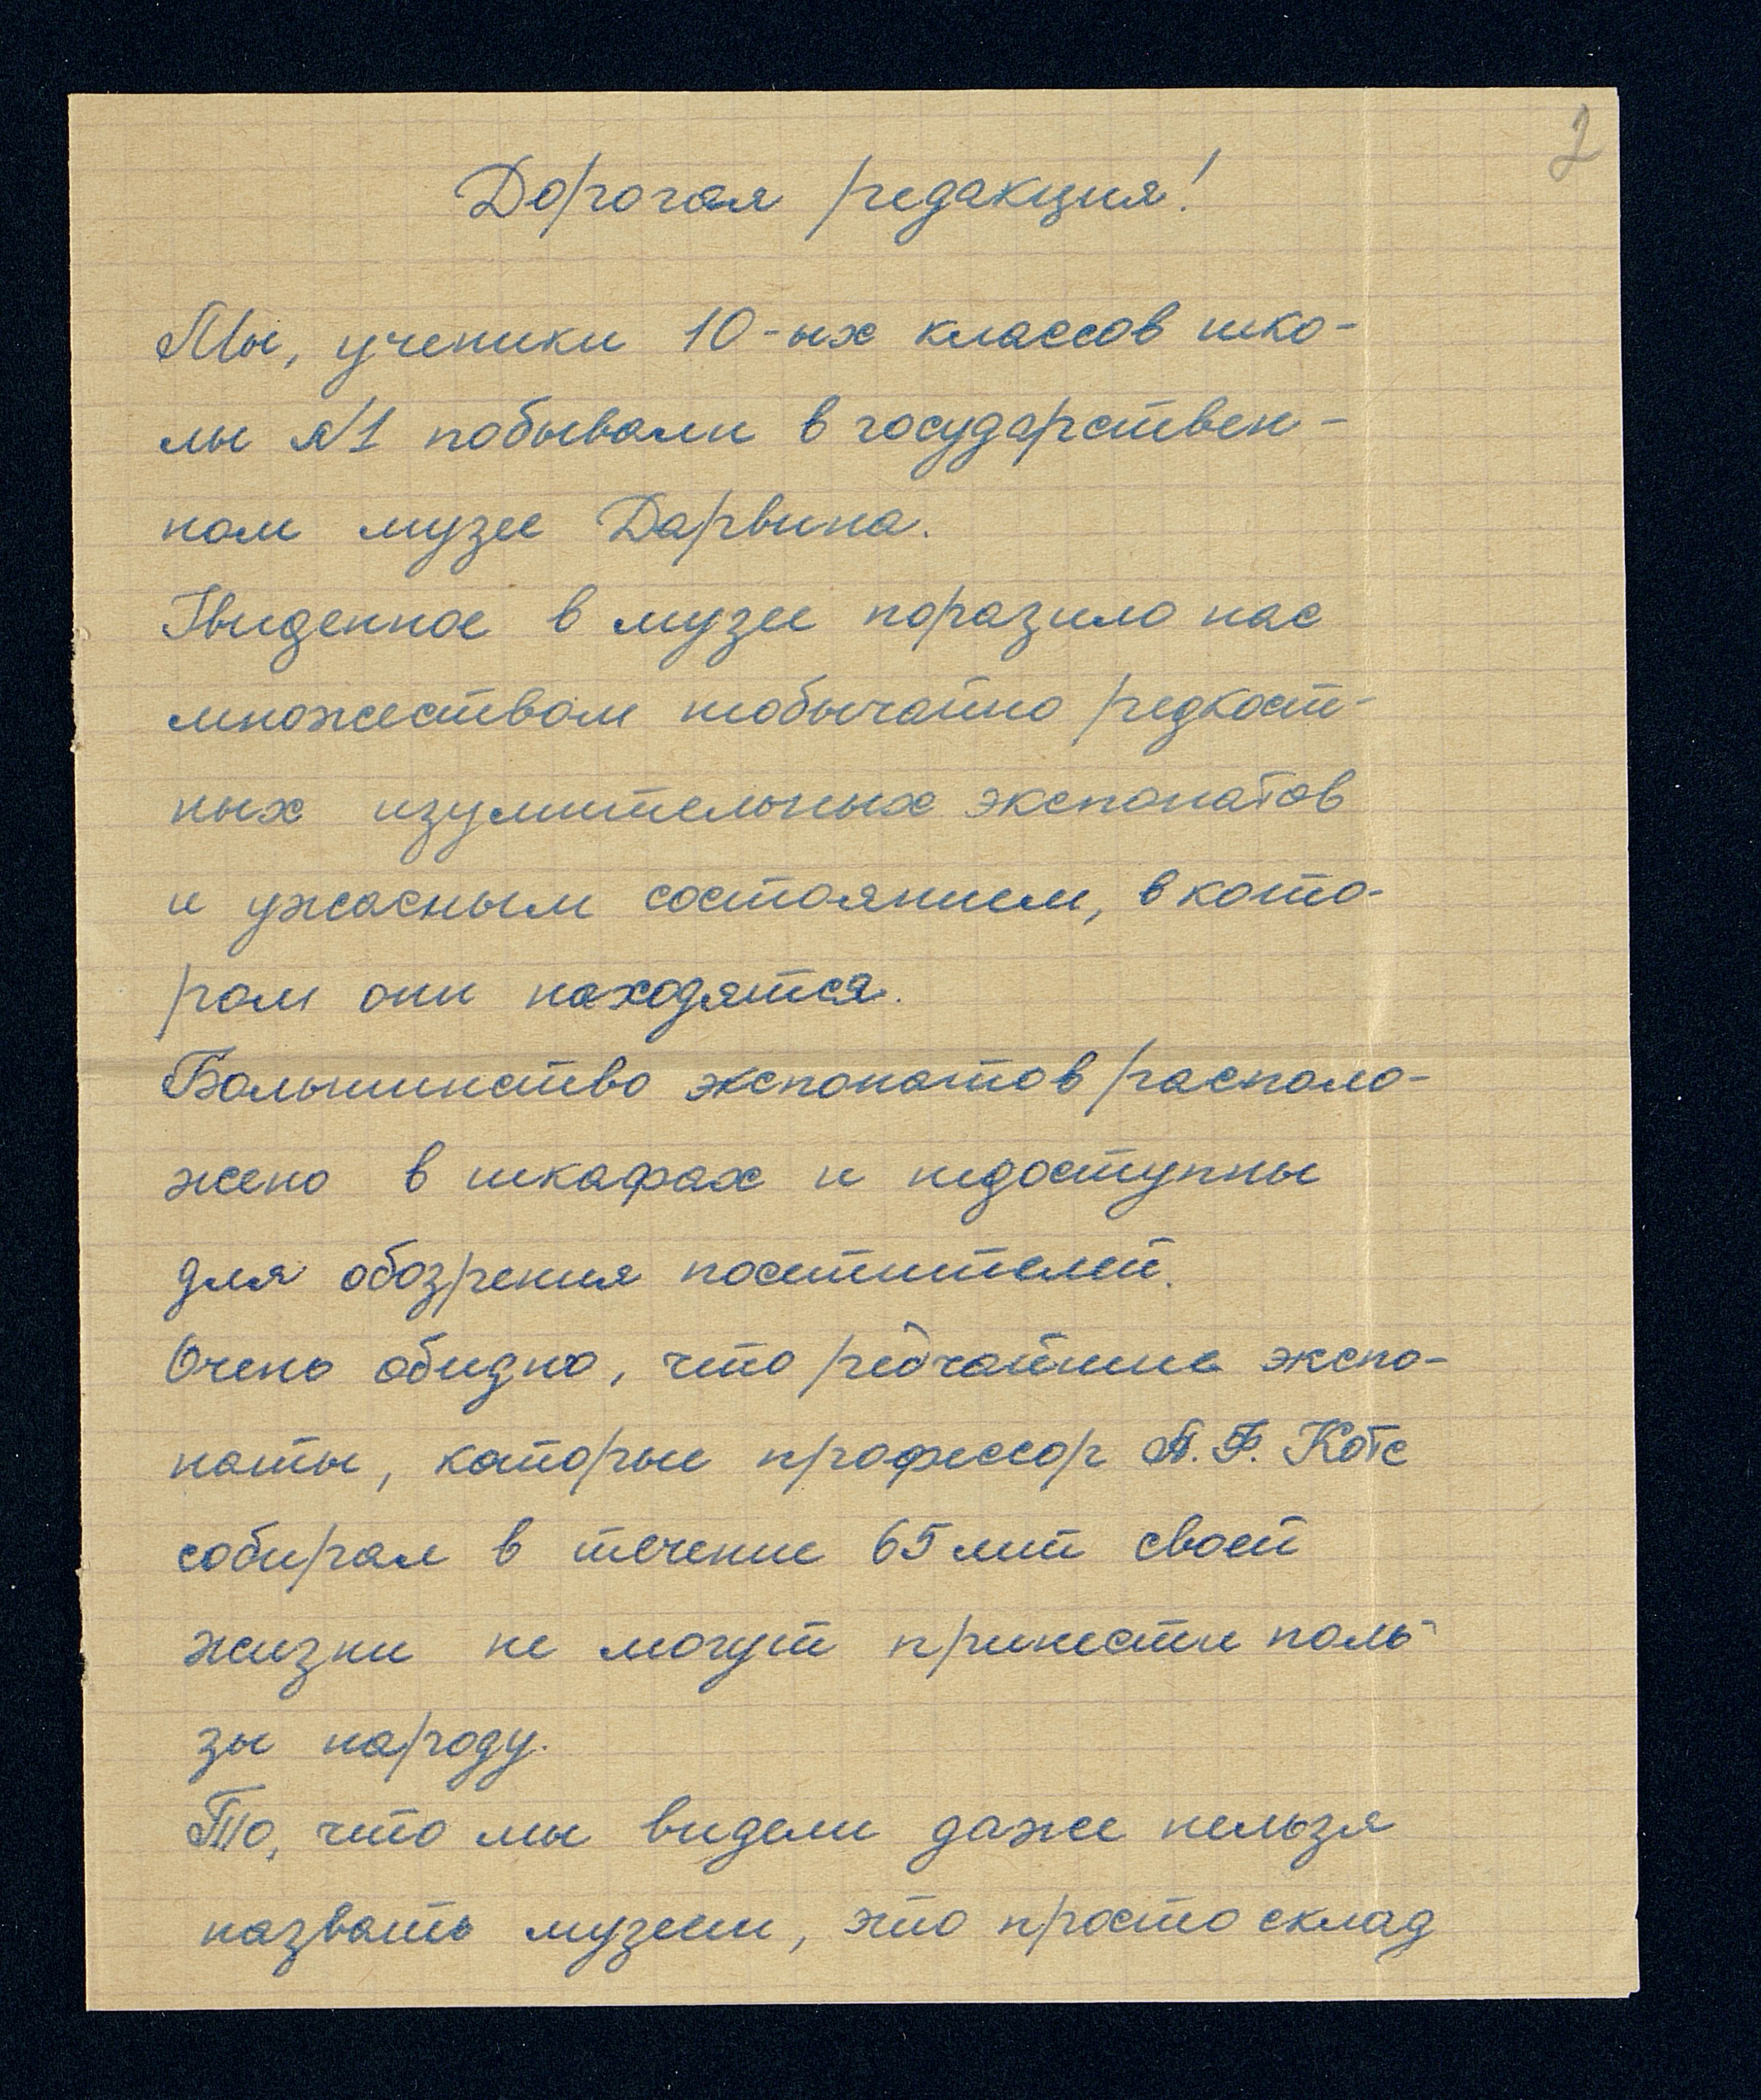 2
Дорогая редакция!
Мы, ученики 10-ых классов шко-
лы №1 побывали в государствен-
ном музее Дарвина.
Увиденное в музее поразило нас
множеством необычайно редкост-
ных изумительных экспонатов
и ужасным состоянием, в кото-
ром они находятся.
Большинство экспонатов располо-
жено в шкафах и недоступны
для обозрения посетителей.
Очень обидно, что редчайшие экспо-
наты, которые профессор А. Ф. Котс
собирал в течение 65 лет своей
жизни не могут принести поль-
зы народу.
То, что мы видели даже нельзя
назвать музеем, это просто склад